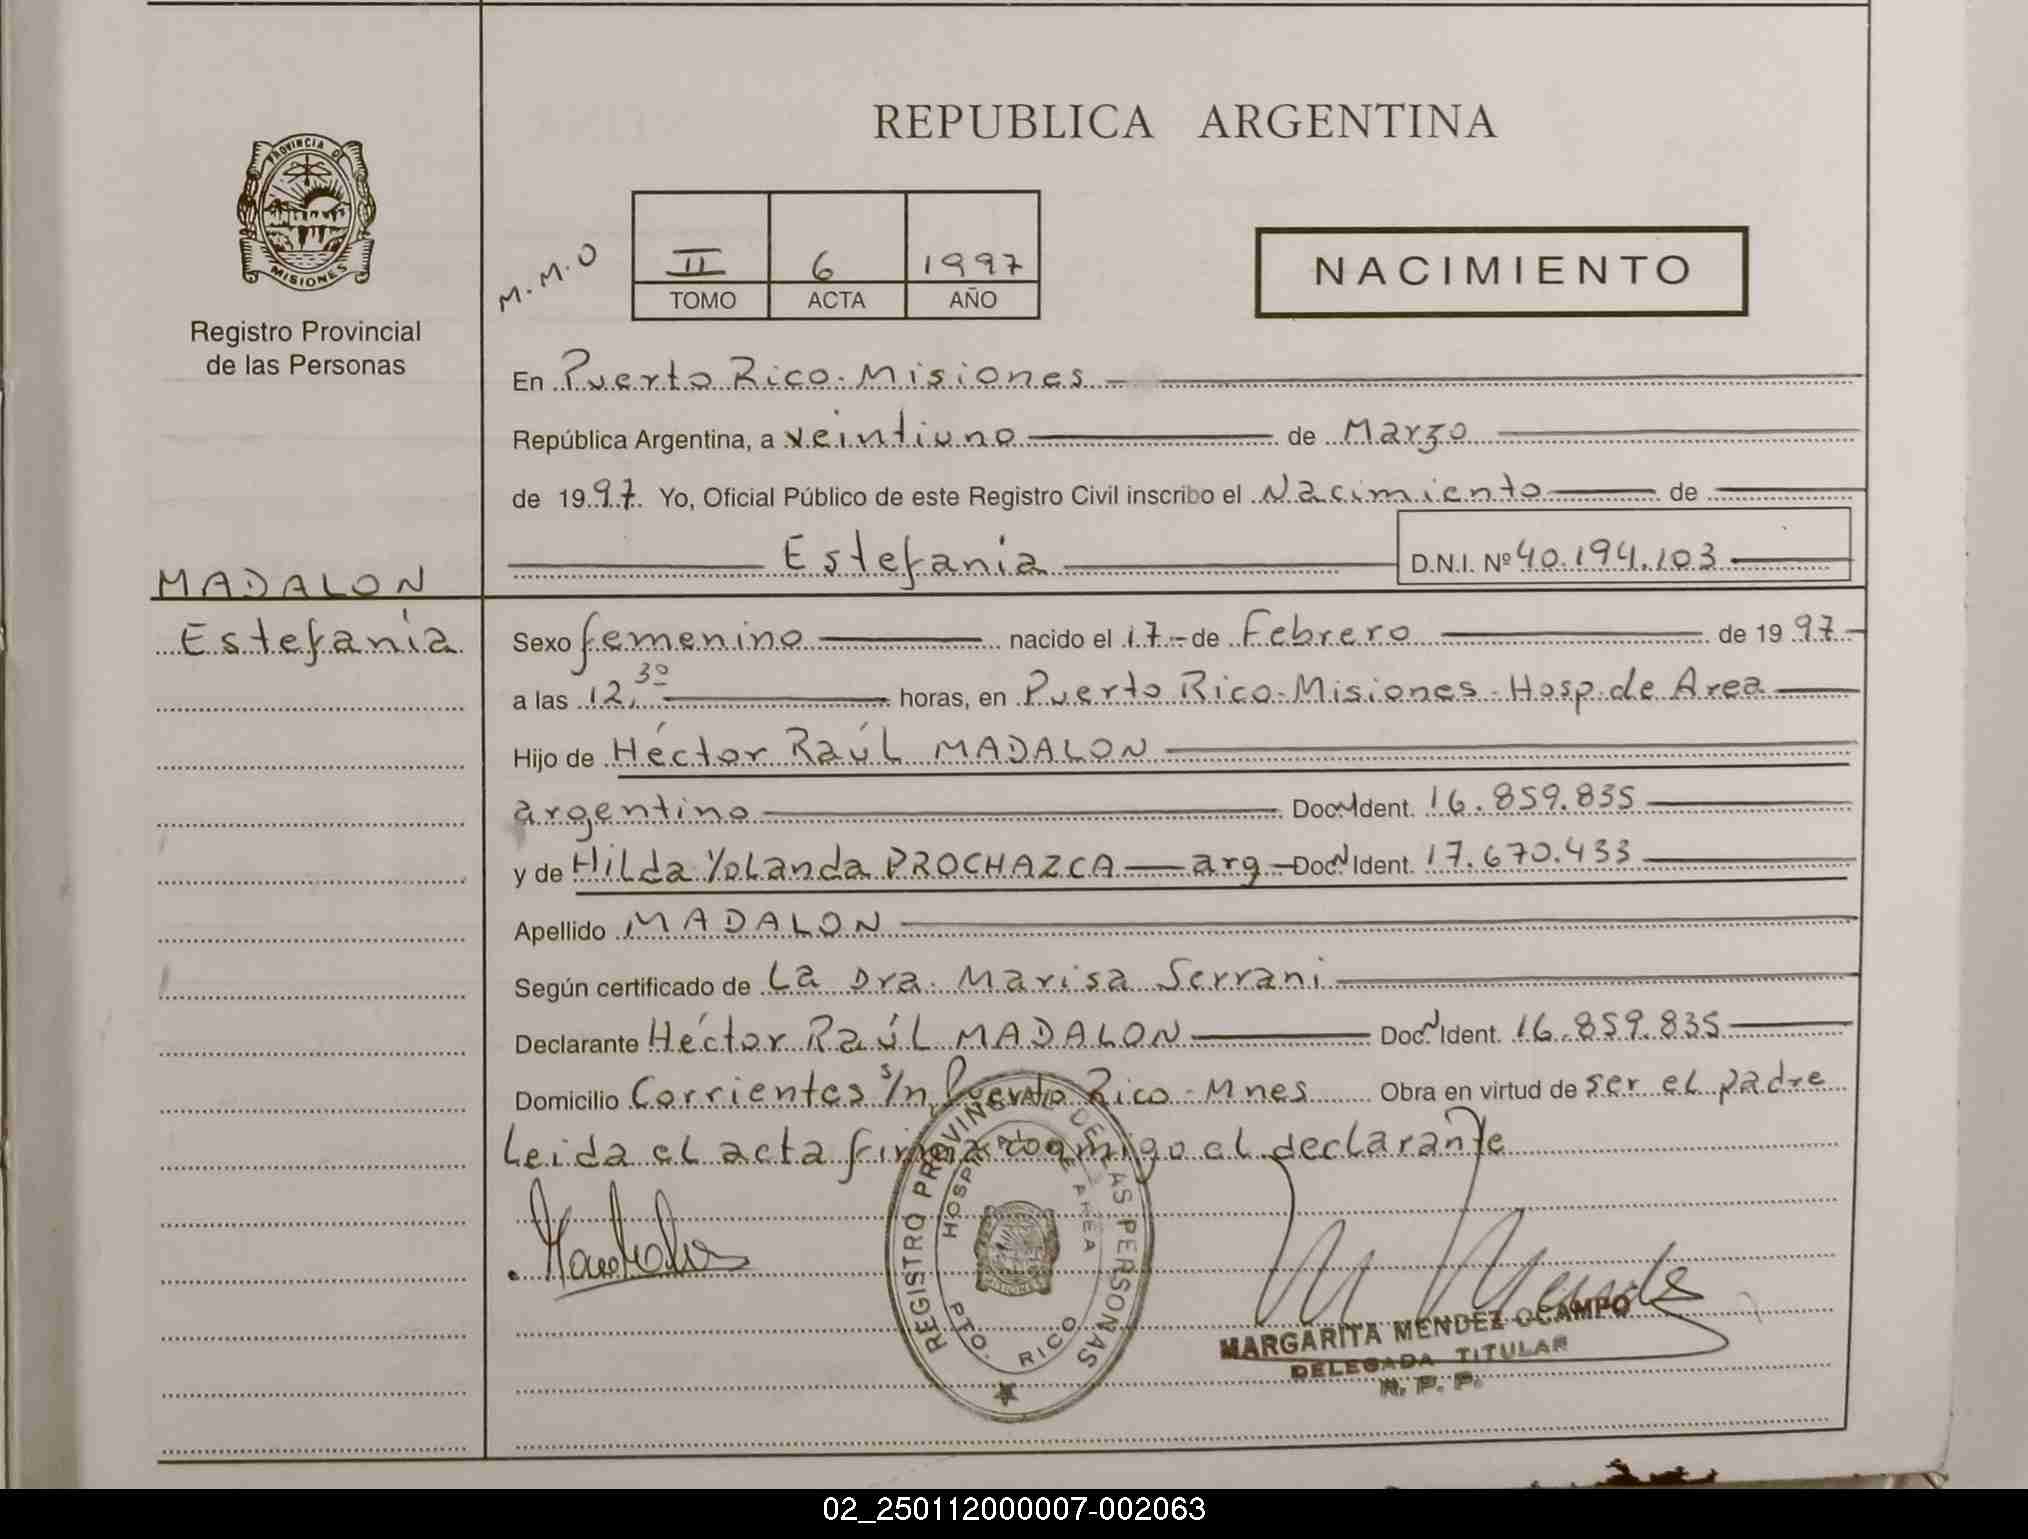 REPUBLICA ARGENTINA
PROVINCIA DE
MISIONES
Registro Provincial
de las Personas
M.M.O
II 6 1997
TOMO ACTA AÑO
NACIMIENTO
En Puerto Rico - Misiones
República Argentina, a veintiuno de Marzo
de 1997 Yo, Oficial Público de este Registro Civil inscribo el Nacimiento de
Estefanía D.N.I. Nº 40.194.103
MADALON
Estefanía
Sexo femenino nacido el 17 - de Febrero de 19 97 -
a las 12,30 horas, en Puerto Rico - Misiones - Hosp. de Area
Hijo de Héctor Raúl MADALON
argentino Doc. N Ident. 16.859.835
y de Hilda Yolanda PROCHAZCA — arg — Doc. N Ident. 17.670.433
Apellido MADALON
Según certificado de La Dra. Marisa Serrani
Declarante Héctor Raúl MADALON Doc. N Ident. 16.859.835
Domicilio Corrientes s/n, Puerto Rico - Mnes Obra en virtud de ser el padre
Leida el acta firma conmigo el declarante
REGISTRO PROVINCIAL DE LAS PERSONAS
HOSPITAL DE AREA
PTO. RICO
MISIONES
MARGARITA MENDEZ OCAMPO
DELEGADA TITULAR
R. P. P.
02_250112000007-002063